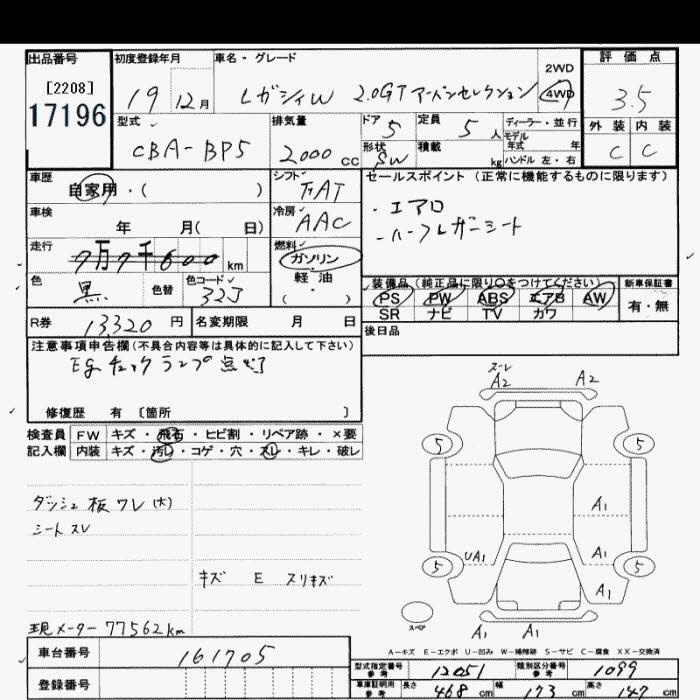 出品番号 初度登録年月 車名・グレード 評価点
[2208]
17196
19 12月 レガシィW 2.0GT アーバンセレクション 2WD 4WD 3.5
型式 排気量 ドア 定員 ディーラー・並行 外装 内装
CBA-BP5 2000 cc 5 5 人 モデル年式 年 C C
形状 SW 積載 kg ハンドル 左・右
車歴 シフト セールスポイント (正常に機能するものに限ります)
自家用・( ) FAT ・エアロ
車検 冷房 AAC ・ハーフレザーシート
年 月( 日)
走行 燃料
7万7千600 km ガソリン
色 色替 色コード 軽油
黒 32J ( )
装備品 (純正品に限り○をつけてください) 新車保証書
PS PW ABS エアB AW 有・無
SR ナビ TV カワ
R券 13,320 円 名変期限 月 日 後日品
注意事項申告欄(不具合内容等は具体的に記入して下さい)
Eg チェックランプ点灯
修復歴 有 〔箇所 〕
検査員 FW キズ・飛石・ヒビ割・リペア跡・×要
記入欄 内装 キズ・汚レ・コゲ・穴・スレ・キレ・破レ
ズレ
A2 A2
5 5
ダッシュ板ワレ(大) A1
シートスレ
UA1 A1
5 5
キズ E スリキズ A1
スペア
現メーター 77562km A1 A1
A-キズ E-エクボ U-凹み W-補修跡 S-サビ C-腐食 XX-交換済
車台番号 161705
型式指定番号 参考 12051 類別区分番号 参考 1099
登録番号 車庫証明用 参考 長さ 468 cm 幅 173 cm 高さ 147 cm